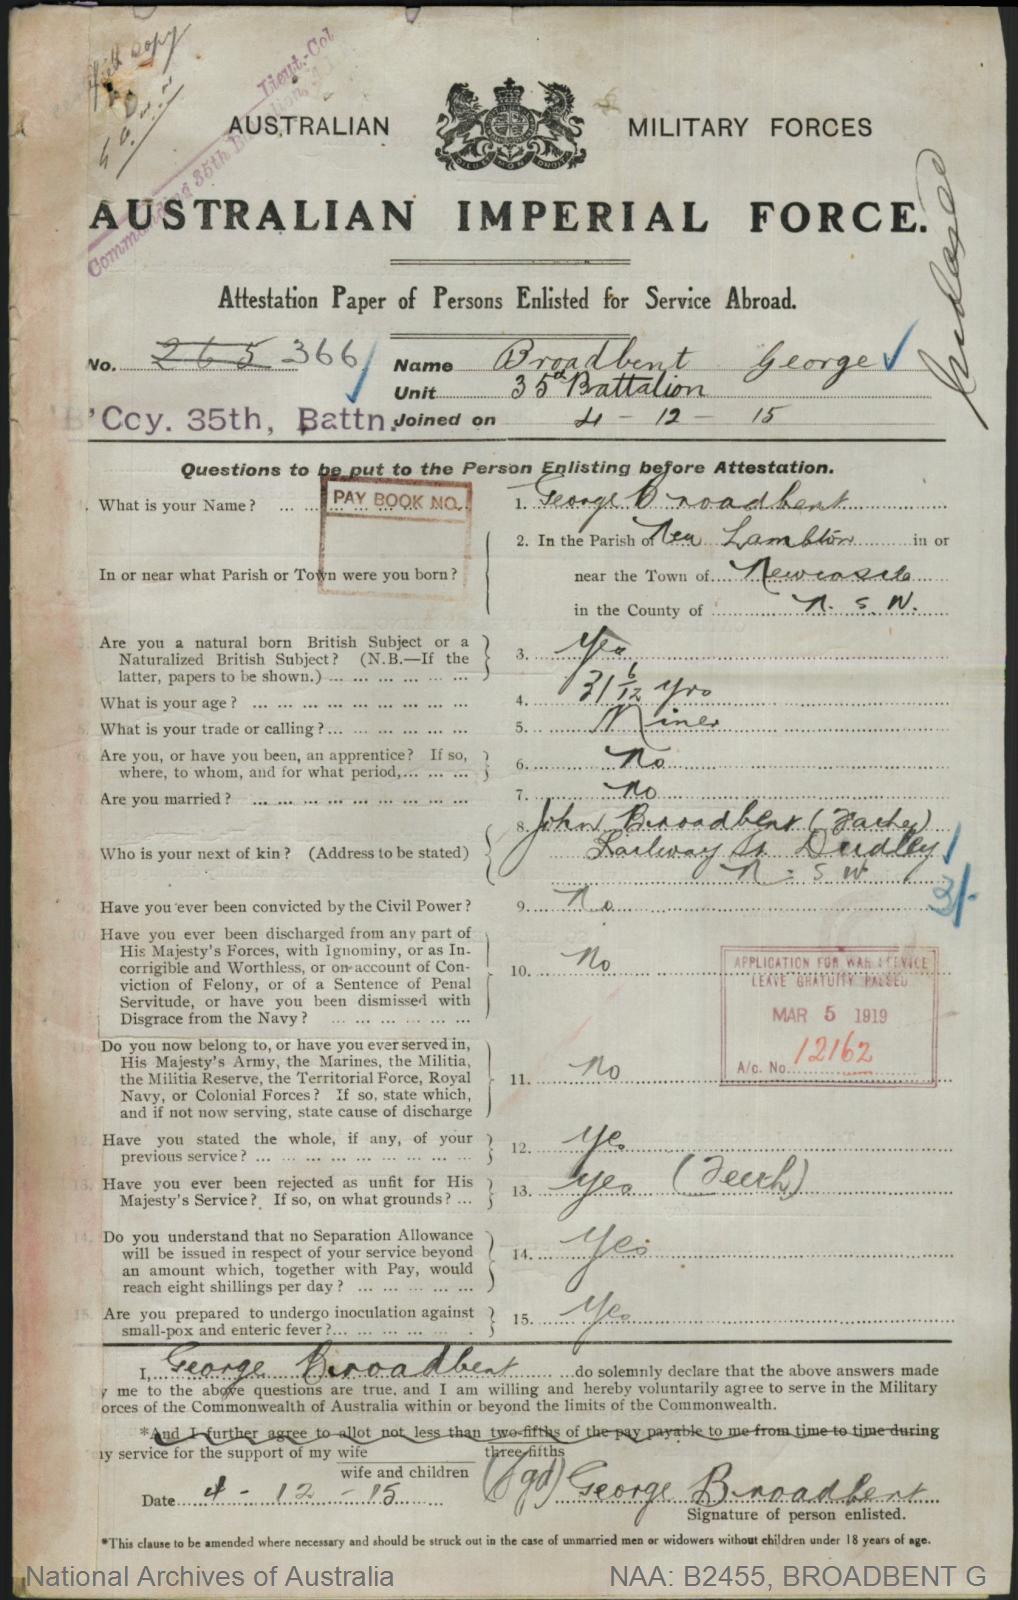 copy
Lieut-Col
Commanding 35th Battalion,
AUSTRALIAN MILITARY FORCES
AUSTRALIAN IMPERIAL FORCE.
Attestation Paper of Persons Enlisted for Service Abroad.
No. 265 366 Name Broadbent George
Unit 35th Battalion
'B' Coy. 35th, Battn. Joined on 4 - 12 - 15
Questions to be put to the Person Enlisting before Attestation.
PAY BOOK NO.
1. What is your Name? ... ... ... 1. George Broadbent
In or near what Parish or Town were you born? 2. In the Parish of New Lambton in or
near the Town of Newcastle
in the County of N. S. W.
3. Are you a natural born British Subject or a
Naturalized British Subject? (N.B.—If the
latter, papers to be shown.) ... 3. Yes
4. What is your age? ... 4. 31 6/12 yrs
5. What is your trade or calling? ... 5. Miner
6. Are you, or have you been, an apprentice? If so,
where, to whom, and for what period, ... 6. No
7. Are you married? ... 7. No
8. Who is your next of kin? (Address to be stated) 8. John Broadbent (Father)
Railway St Dudley
N. S W
3/-
9. Have you ever been convicted by the Civil Power? 9. No
10. Have you ever been discharged from any part of
His Majesty's Forces, with Ignominy, or as In-
corrigible and Worthless, or on account of Con-
viction of Felony, or of a Sentence of Penal
Servitude, or have you been dismissed with
Disgrace from the Navy? ... 10. No
APPLICATION FOR WAR SERVICE
LEAVE GRATUITY PASSED
MAR 5 1919
A/c. No. 12162
11. Do you now belong to, or have you ever served in,
His Majesty's Army, the Marines, the Militia,
the Militia Reserve, the Territorial Force, Royal
Navy, or Colonial Forces? If so, state which,
and if not now serving, state cause of discharge 11. No
12. Have you stated the whole, if any, of your
previous service? ... 12. Yes
13. Have you ever been rejected as unfit for His
Majesty's Service? If so, on what grounds? ... 13. Yes (Teeth)
14. Do you understand that no Separation Allowance
will be issued in respect of your service beyond
an amount which, together with Pay, would
reach eight shillings per day? ... 14. Yes
15. Are you prepared to undergo inoculation against
small-pox and enteric fever? ... 15. Yes
I, George Broadbent do solemnly declare that the above answers made
by me to the above questions are true, and I am willing and hereby voluntarily agree to serve in the Military
Forces of the Commonwealth of Australia within or beyond the limits of the Commonwealth.
*And I further agree to allot not less than two-fifths of the pay payable to me from time to time during
my service for the support of my wife three-fifths
wife and children
Date 4 - 12 - 15 (Sgd) George Broadbent
Signature of person enlisted.
*This clause to be amended where necessary and should be struck out in the case of unmarried men or widowers without children under 18 years of age.
National Archives of Australia NAA: B2455, BROADBENT G